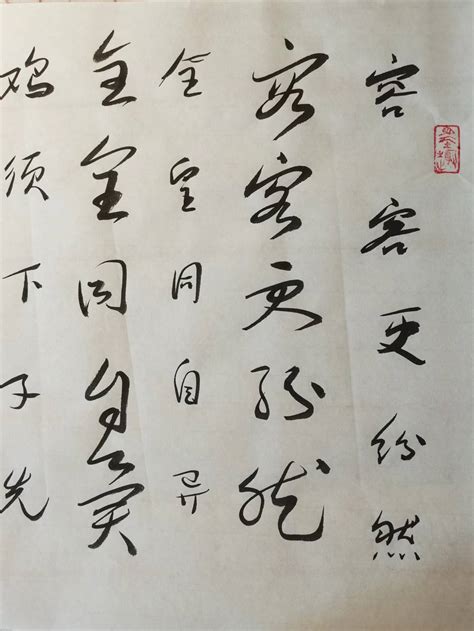 容客更纷然
容客更纷然
全同自异
全同自异
鸡须下子先